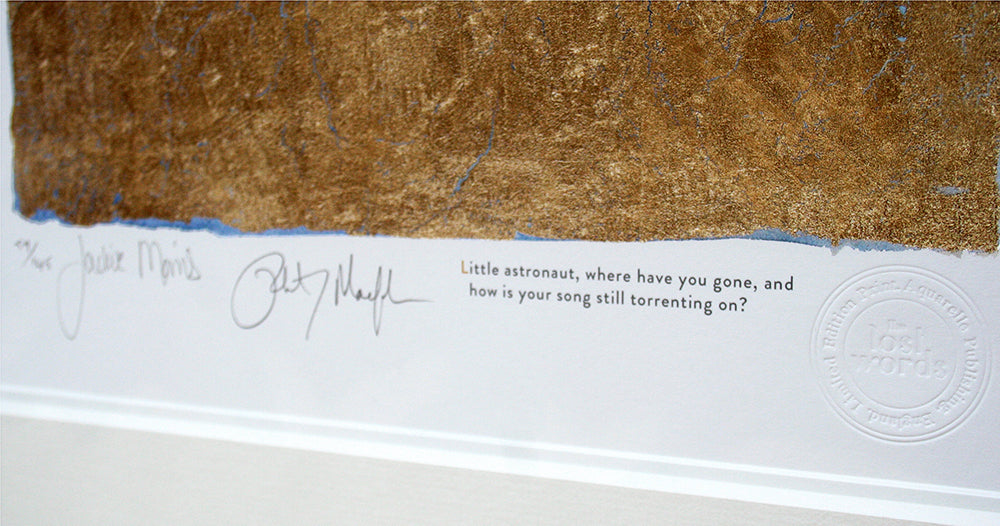 Jackie Morris
Little astronaut, where have you gone, and
how is your song still torrenting on?
The
lost
words
Limited Edition Print. Aquarelle Publishing, England.